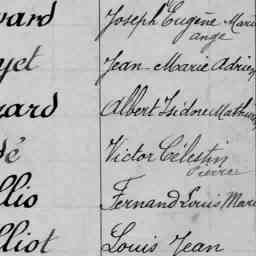 vard Joseph Eugène Marie
ange
yet Jean-Marie Adrien
rard Albert Isidore Mathurin
é Victor Célestin
Pierre
llio Fernand Louis Marie
lliot Louis Jean